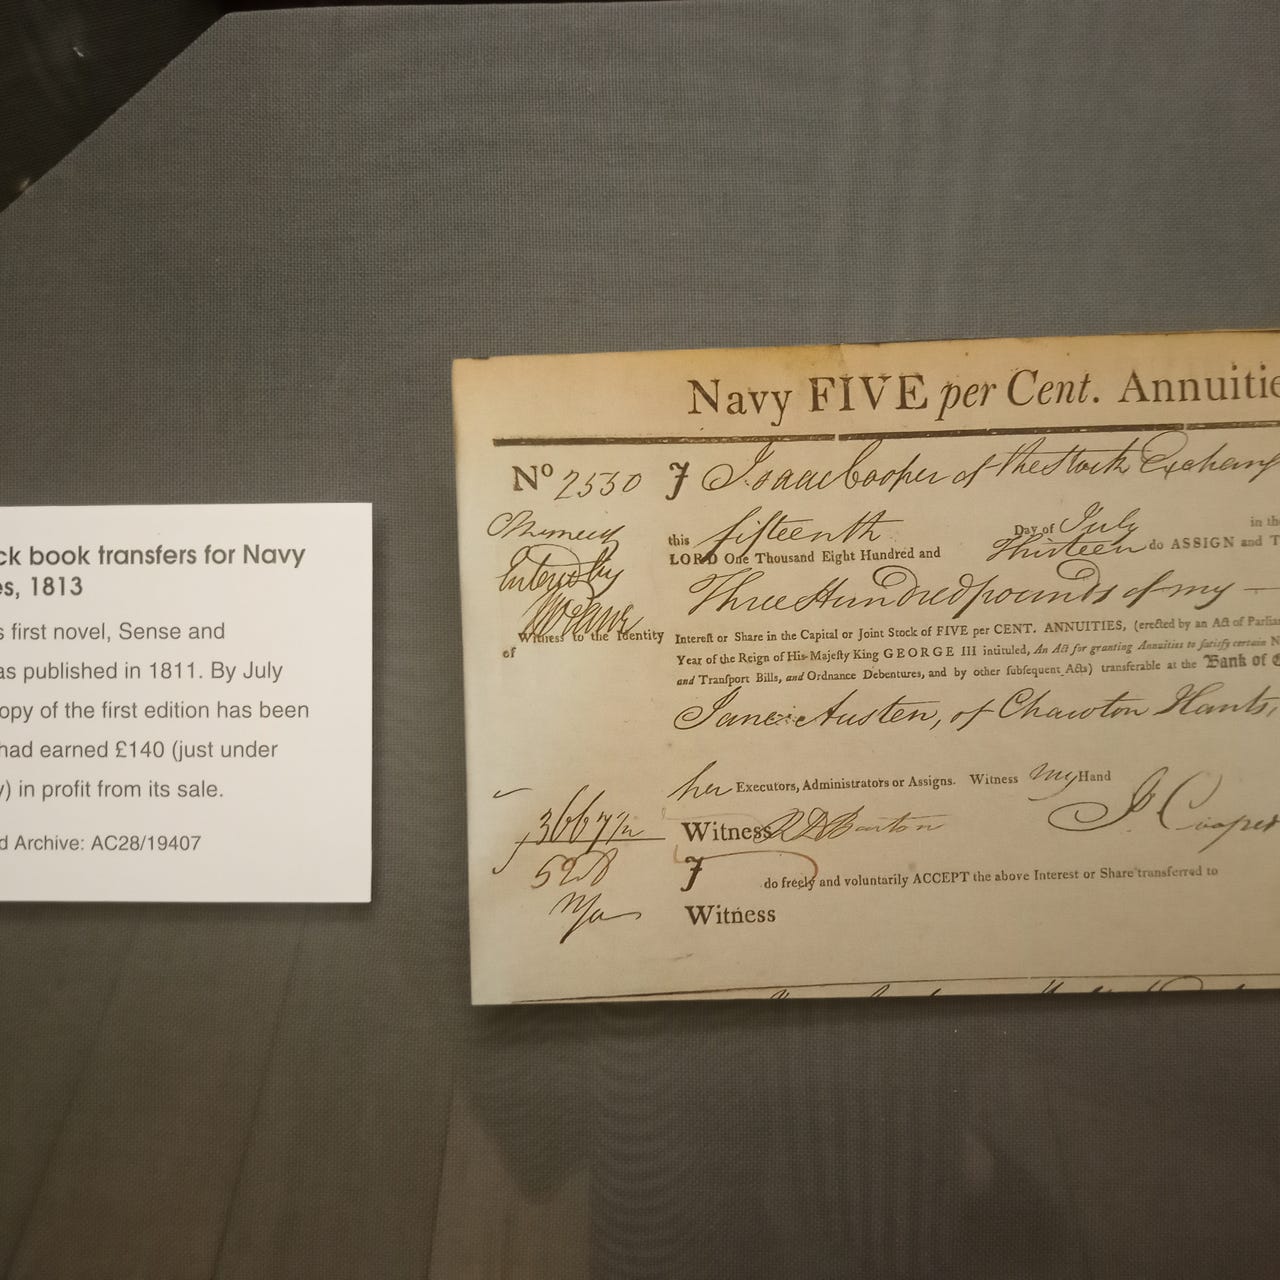 ck book transfers for Navy
es, 1813
s first novel, Sense and
as published in 1811. By July
opy of the first edition has been
had earned £140 (just under
y) in profit from its sale.
d Archive: AC28/19407
Navy FIVE per Cent. Annuitie
No 2550 I Isaac Cooper of the Stock Exchang
this fifteenth Day of July in the
LORD One Thousand Eight Hundred and Thirteen do ASSIGN and T
Three Hundred pounds of my
Witness to the Identity
of
Interest or Share in the Capital or Joint Stock of FIVE per CENT. ANNUITIES, (erected by an Act of Parlia
Year of the Reign of His Majesty King GEORGE III intituled, An Act for granting Annuities to satisfy certain N
and Transport Bills, and Ordnance Debentures, and by other subsequent Acts) transferable at the Bank of E
Jane Austen, of Chawton Hants,
her Executors, Administrators or Assigns. Witness my Hand
Witness Barton
J Cooper
528
I do freely and voluntarily ACCEPT the above Interest or Share transferred to
Witness